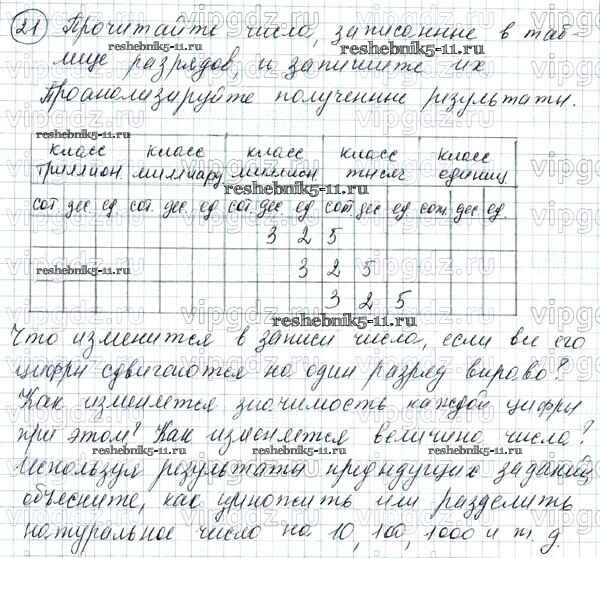 21 Прочитайте число, записанные в таб-
reshebnik5-11.ru
лице разрядов, и запишите их.
Проанализируйте полученные результаты.
reshebnik5-11.ru
класс триллион класс миллиард класс миллион класс тысяч класс единиц
reshebnik5-11.ru
сот. дес. ед. сот. дес. ед. сот. дес. ед. сот. дес. ед. сот. дес. ед.
3 2 5
3 2 5
reshebnik5-11.ru
3 2 5
reshebnik5-11.ru
Что изменится в записи числа, если все его
цифры сдвигаются на один разряд вправо?
Как изменяется значимость каждой цифры
при этом? Как изменяется величина числа?
Используя результаты предыдущих заданий,
объясните, как умножить или разделить
натуральное число на 10, 100, 1000 и т. д.
vipgdz.ru